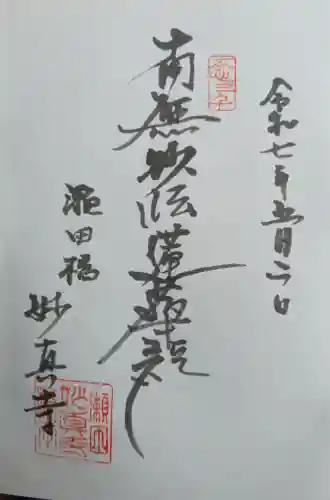 令和七年五月二日
南無妙法蓮華経
瀬田橋
妙真寺